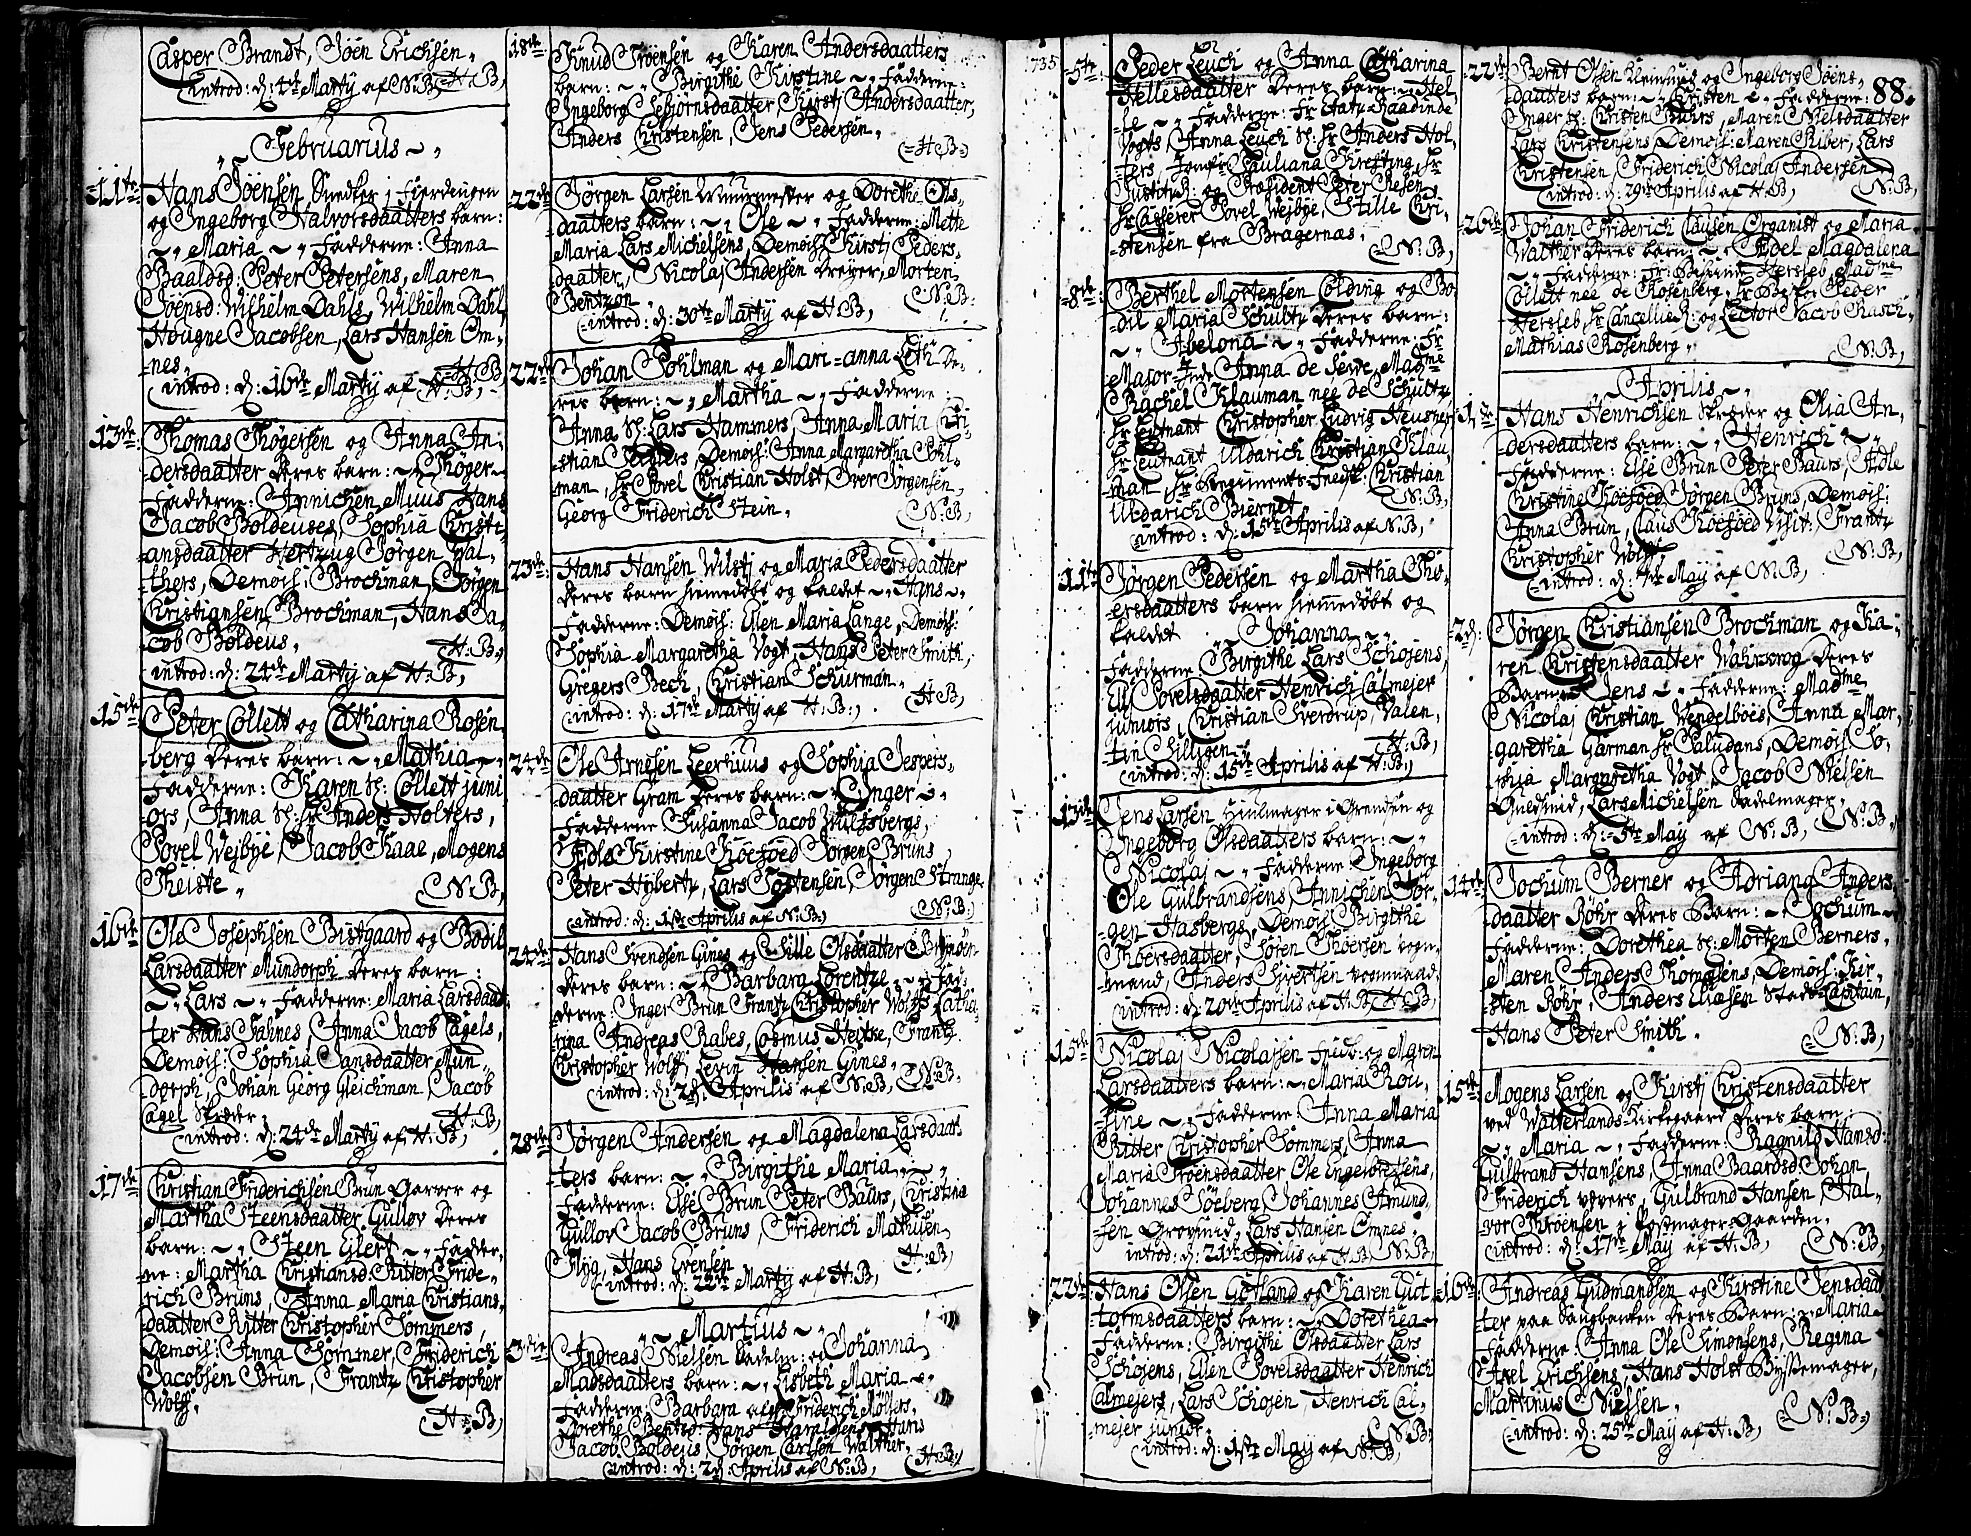 Casper Brandt, Jöen Erichsen
introd: d: 4de Martÿ af N:B: H:B,
Februarius
11te
Hans Jöensen Snedker i Fierdingen
og Ingeborg Halvorsdaatters barn:
Maria Fadderne: Anna
Baaldsd: Peter Petersens, Maren
Jöensd: Wilhelm Dahls, Wilhelm Dahl,
Hougne Jacobsen, Lars Hansen Om-
nes. H:B,
introd: d: 16de Martÿ af H:B,
13de
Thomas Thögersen og Anna An-
dersdaatter deres barn: Thöger
Fadderne: Annichen Muus Hans
Jacob Boldeuses, Sophia Christi-
ansdaatter Hertzug Jörgen Wal-
thers, Demois: Brochman, Jörgen
Christiansen Brochman, Hans Ja-
cob Boldeus, H:B,
introd: d: 24de Martÿ af H:B,
15de
Peter Collett og Catharina Rosen-
berg deres barn: Mathia
Fadderne: Karen Sl: Collett juni-
ors, Anna Sl: Hr Anders Holters,
Povel Wejbÿe, Jacob Kaae, Mogens
Theiste N:B,
16de
Ole Josephsen Bistgaard og Bodil
Larsdaatter Mundorph deres barn:
Lars Fadderne: Maria Larsdaat-
ter Hans Fahnes, Anna Jacob Cagels,
Demois: Sophia Jansdaatter Mun-
dorph, Johan Georg Gleichman, Jacob
Cagel Skreder H:B,
introd: d: 24de Martÿ af H:B,
17de
Christian Friderichsen Brun Garver og
Martha Steensdaatter Gullov deres
barn: Steen Glert Fadder-
ne: Martha Christiansd: Ritter Fride-
rich Bruns, Anna Maria Christians-
daatter Ritter Christopher Sommers,
Demois: Anna Sommer, Friderich
Jacobsen Brun, Frantz Christopher
Wolff. H:B,
18de
Knud Troensen og Karen Andersdaatters
barn: Birgithe Kirstine Fadderne:
Ingeborg Esbjornsdaatter, Kirstj Andersdaatter,
Anders Christensen, Jens Pedersen,
H:B:
22de
Jörgen Larsen Muurmester og Dorethe Ols-
daatters barn: Ole Fadderne: Mette
Maria Lars Michelsens, Demois: Kirstj Peders-
daatter, Nicolaj Andersen Dreÿer, Morten
Bentzon N:B:
introd: d: 30te Martÿ af H:B,
22de
Johan Pohlman og Mari-anna Leth De-
res barn: Martha Fadderne:
Anna Sl: Lars Hammers, Anna Maria Chri-
stian Sellers, Demois: Anna Margaretha Pohl-
man, Hr Povel Christian Holst, Iver Jörgensen,
Georg Friderich Stein. N:B,
23de
Hans Hansen Wilstj og Maria Pedersdaatter
deres barn hiemedöbt og kaldet Hans
Fadderne: Demois: Ellen Maria Lange, Demois:
Sophia Margaretha Vogt, Hans Peter Smith,
Gregers Bech, Christian Schurman. H:B,
introd: d: 17de Martÿ af H:B,
24de
Ole Arnesen Leerhuus og Sophia Jespers-
daatter Gram deres barn: Inger
Fadderne: Susanna Jacob Wulfsbergs,
Edle Kirstine Koefoed Jörgen Bruns
Peter Hÿbertz, Lars Torstensen, Jörgen Strange
introd: d: 1ste Aprilis af N:B, N:B:
24de
Hans Svendsen Gines og Cesille Olsdaatter
deres barn: Barbara Lorentze Fad-
derne: Inger Brun Frantz Christopher Wolfs, Catha-
rina Andreas Rabes, Cosmus Hejtke, Frantz
Christopher Wolff, Levin Hansen Gines.
introd: d: 2d Aprilis af N:B, N:B,
28de
Jörgen Andersen og Magdalena Larsdaat-
ters barn: Birgithe Maria
Fadderne: Else Brun Peter Baurs, Christina
Gullov Jacob Bruns, Friderich Mathisen
Flÿg, Hans Evensen H:B,
introd: d: 22de Martÿ af H:B,
Martius
3die
Andreas Nielsen Sadelm: og Johanna
Madsdaatters barn: Lisbeth Maria
Fadderne: Barbara Friderich Möllers,
Dorethe Bentsd: Hans Haraldsens, Hans
Jacob Boldeus, Jörgen Carlsen Walther.
introd: d: 2d: Aprilis af N:B, H:B,
1735
5te
Peder Leuch og Anna Catharina
Hellesdaatter Deres barn: Hel-
le Fadderne: Fr Etats Raadinde
Vogts, Anna Leuch Sl: Hr Anders Hol-
ters Jomfr Pauliana Krefting, Hr
Justitsr: og Præsident Peter Resen
Hr Casserer Povel Wejbÿe, Stille Chri-
stensen fra Bragernæs. N:B,
8de
Berthel Mortensen Colding og Bo-
dil Maria Schultz deres barn:
Abelona Fadderne: Fr
Major-inde Anna de Seue, Madme
Rachel Klauman nee de Schultz,
Hr Leutnant Christopher Ludvig Neusner
Hr Leutnant Uldarich Christian Klau-
man Hr Regiments-Feltsk: Christian
Uldarich Biernet N:B,
introd: d: 15de Aprilis af N:B,
11te
Jörgen Pedersen og Martha Tho-
ersdaatters barn hiemedöbt og
kaldet Johanna
Fadderne: Birgithe Lars Schojens,
Ell: Povelsdaatter Henrich Calmejer
juniors, Christian Sverdrup, Valen-
tin Schilligen H:B,
introd: d: 15de Aprilis af H:B,
13de
Jens Larsen Hiulmager i Grendsen og
Ingeborg Olsdaatters barn:
Nicolaj Fadderne: Ingeborg
Ole Gulbrandsens, Annichen Jör-
gen Hasbergs, Demois: Birgithe
Thoersdaatter, Sören Thoersen vogn-
mand, Anders Sivertsen vognmand
introd: d: 20de Aprilis af H:B, H:B,
15de
Nicolaj Nicolajsen Fridb: og Maren
Larsdaatters barn: Maria Rou-
sine Fadderne: Anna Maria
Ritter Christopher Sommers, Anna
Maria Troensdaatter Ole Engelbretsens,
Johannes Söeberg, Johannes Amund-
sen Grovsmid, Lars Hansen Omnes.
introd: d: 21de Aprilis af H:B, N:B,
22de
Hans Olsen Gotland og Karen Gut-
tormsdaatters barn: Dorethea
Fadderne: Birgithe Olsdaatter Lars
Schojens, Ellen Povelsdaatter Henrich
Calmejers, Lars Schojen, Henrich Cal-
mejer junior N:B,
introd: d: 1ste May af N:B,
88.
22de
Bernt Olsen og Ingeborg Jöens-
daatters barn: Kristen Fadderne:
Inger Sl: Christen Buhrs, Maren Nielsdaatter
Lars Christensens Demois: Maren Riber, Lars
Christensen, Friderich Nicolaj Andersen
introd: d: 29de Aprilis af H:B, N:B,
26de
Johan Friderich Clausen Organist og Maria
Walther deres barn: Abel Magdalena
Fadderne: Fr: Bispinde Hersleb, Madme
Collett nee de Rosenberg, Hr Biskop Peder
Hersleb Hr Cancellier: og Lector Jacob Rasch
Mathias Rosenberg N:B,
Aprilis
1ste
Hans Henrichsen Skreder og Olia An-
dersdaatters barn: Henrich
Fadderne: Else Brun Peter Baurs, Edle
Christine Koefoed Jörgen Bruns, Demois:
Anna Brun, Claus Koefoed Visit: Frantz
Christopher Wolff. N:B,
introd: d: 4de May af N:B,
2d:
Jörgen Christiansen Brochman og Ka-
ren Christensdaatter Wahrwog deres
Barn: Jens Fadderne: Madme
Nicolaj Christian Wendelboes, Anna Mar-
garetha Garman Hr Paludans, Demois: So-
phia Margaretha Vogt, Jacob Nielsen
Guldsmid, Lars Michelsen Sadelmager.
introd: d: 5te May af N:B, N:B,
14de
Jochum Berner og Adriana Anders-
daatter Röhr deres Barn: Jochum
Fadderne: Dorethea Sl: Morten Berners,
Maren Anders Thomæsens, Demois: Kir-
sten Röhr, Anders Eliæsen Stads-Capitain,
Hans Peter Smith. N:B,
15de
Mogens Larsen og Kirstj Christensdaatter
ved Watterlands-Kirkegaard deres barn:
Maria Fadderne: Ragnild Hansd:
Gulbrand Hansens, Anna Baardsd: Johan
Friderich Wævers, Gulbrand Hansen, Hal-
vor Throensen i Posemager-Gaarden.
introd: d: 17de May af H:B, N:B,
16de
Andreas Gudmandsen og Kirstine Jensdaat-
ter paa Sangbanken deres Barn: Maria
Fadderne: Anna Ole Simonsens, Regina
Axel Erichsens, Hans Holst Bÿssemager,
Martinus Nielsen. N:B,
introd: d: 25de May af H:B,